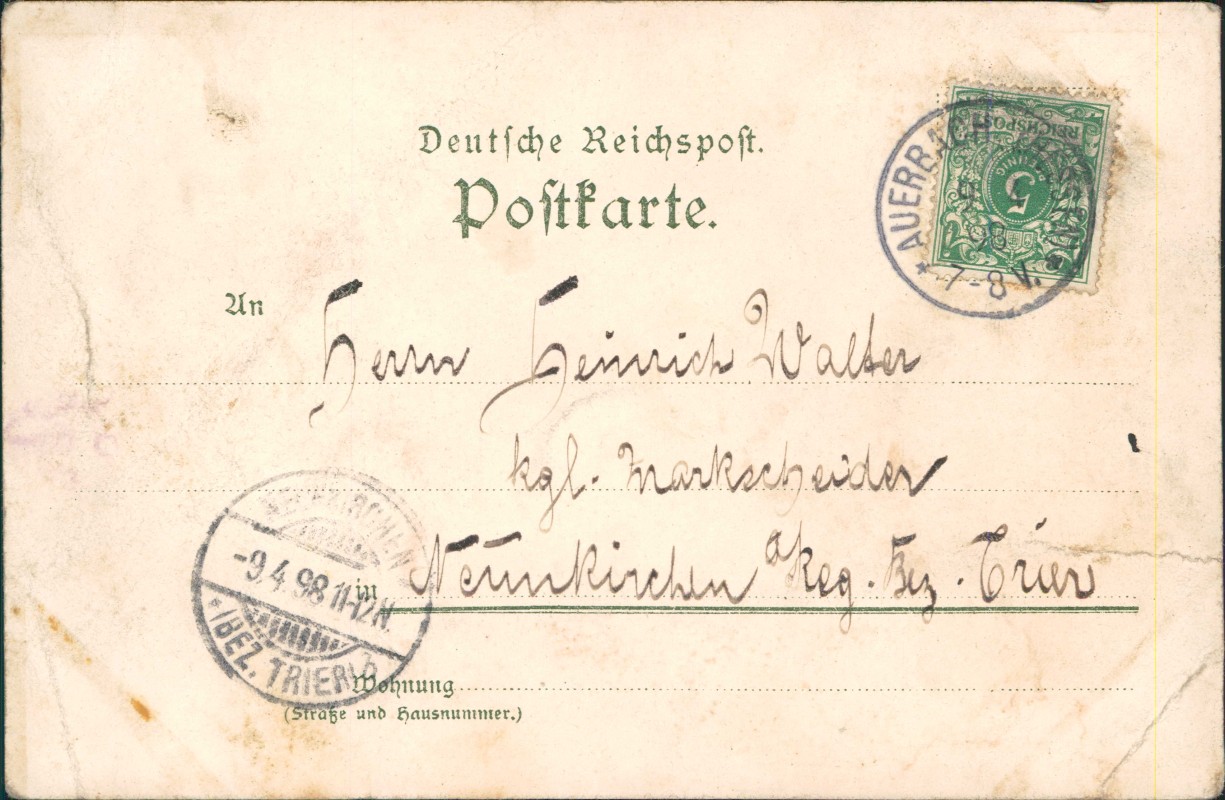 Deutsche Reichspost.
Postkarte.
REICHSPOST
5
PFENNIG
AUERBACH
9 4
98
* 7-8 V. *
An Herrn Heinrich Walter
kgl. Markscheider
in Neunkirchen Reg. Bez. Trier
NEUNKIRCHEN
-9.4.98 11-12N.
* (BEZ. TRIER)
Wohnung
(Straße und Hausnummer.)